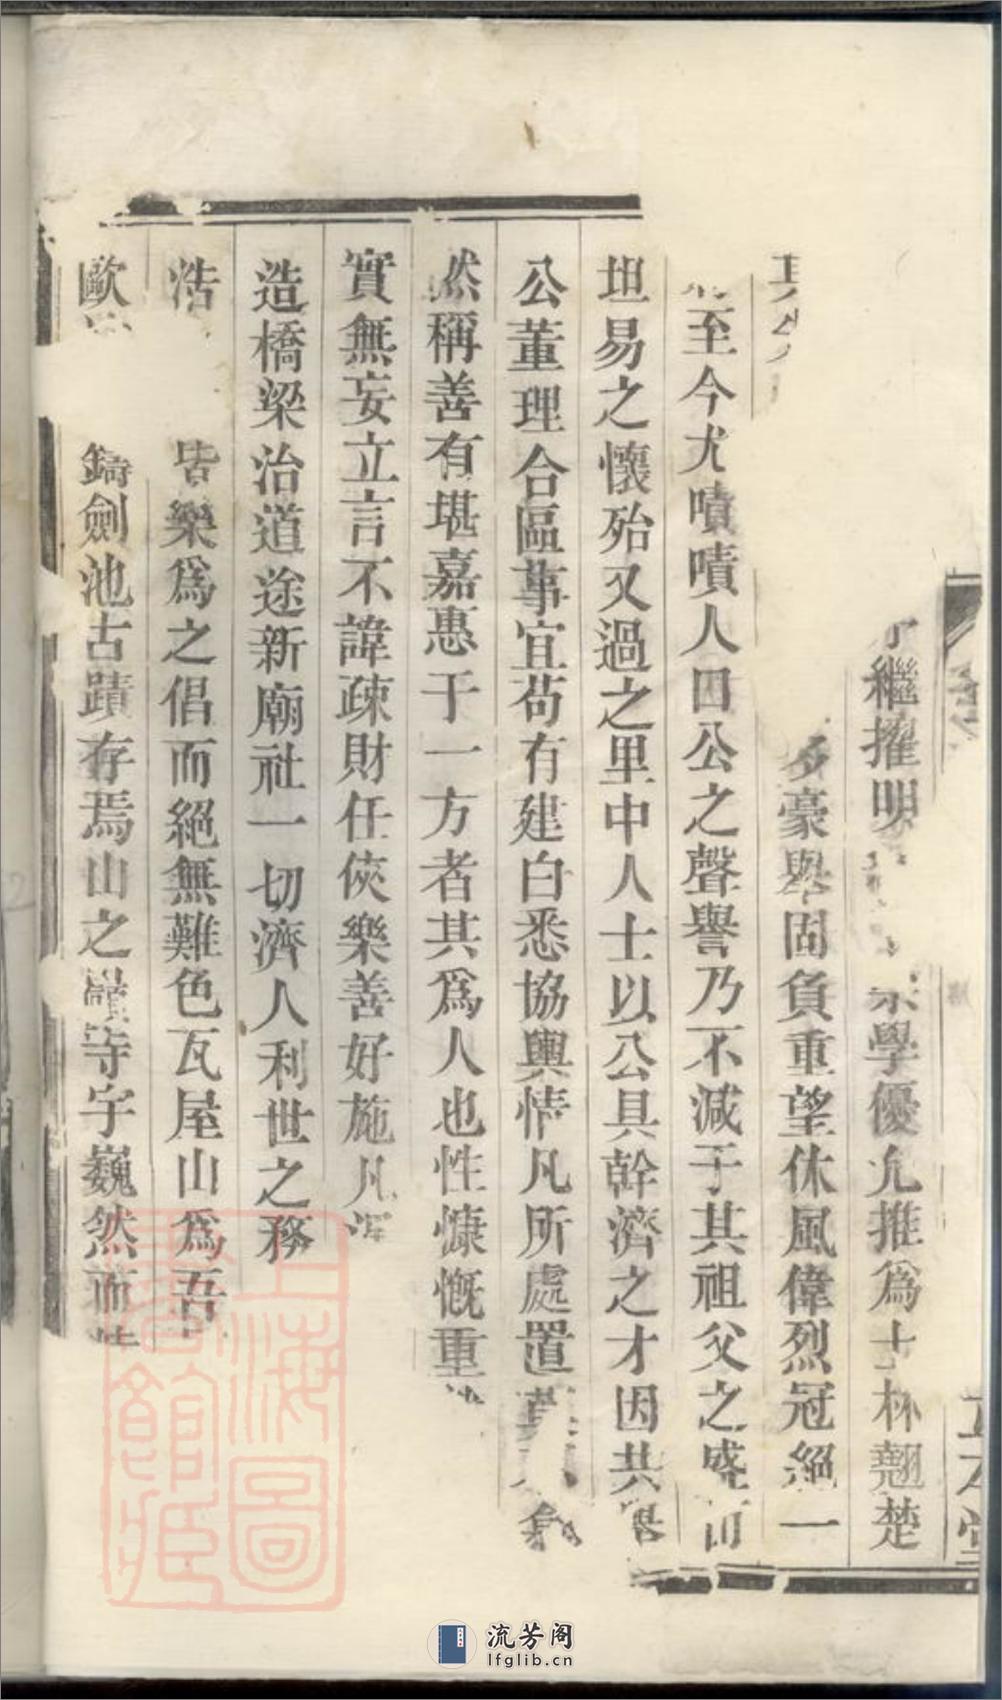 立本堂
繼擢明學優尤推爲士林翹楚
其豪舉固負重望休風偉烈冠絕一
至今尤嘖嘖人口公之聲譽乃不減于其祖父之盛而
坦易之懷殆又過之里中人士以公具幹濟之才因共舉
公董理合區事宜苟有建白悉協輿情凡所處置
然稱善有堪嘉惠于一方者其爲人也性慷慨重
實無妄立言不諱疎財任俠樂善好施凡
造橋梁治道途新廟社一切濟人利世之務
浩皆樂爲之倡而絕無難色瓦屋山爲吾
歐鑄劍池古蹟存焉山之寺宇巍然而
上海圖書館藏
流芳阁
lfglib.cn